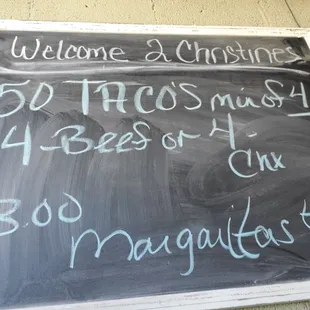 Welcome 2 Christines
50 TACO'S min of 4
4-Beef or 4-
Chx
3.00
Margaritas